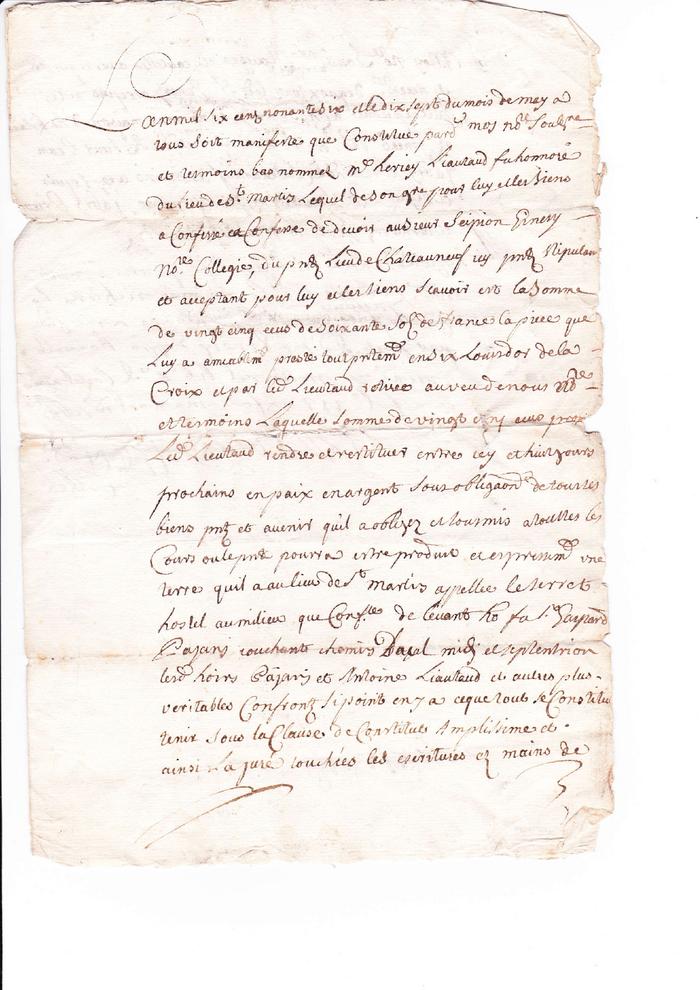 L'an mil six cens nonante six et le dix sept du mois de may a
tous soit manifeste que Constitué pard^t moy no^re soubz^né
et tesmoins bas nommez m^e Liautaud fu honnoré
du lieu de S^t Martin Lequel de son gré pour luy et les siens
a Confessé et Confesse de devoir au sieur Scipion
No^re Collegié, du p^nt Lieu de Chateauneuf icy p^nt stipulan
et acceptant pour luy et les siens scavoir est la somme
de vingt cinq ecus de soixante sols de france la piece que
Luy a amiablem^t presté tout p^ntem^t en six Louis dor de la
Croix et par led^t Lieutaud retirée au veu de nous No^re
et tesmoins Laquelle somme de vingt cinq ecus
Led^t Lieutaud rendre et restituer entre icy et huit jours
prochains en paix en argent sous obliga^on de tous ses
biens p^nt et avenir quil a obligez et soumis a toutes les
Cours ou le p^nt pourra estre produit et expressem^t une
terre quil a au lieu de S^t martin appellée le serret
hostel au milieu que Conf^te de levant ho fu s^r Gaspard
Pajani couchant chemin Dajal midi et septentrion
lesd^t hoirs Pajani et Antoine Liautaud et autres plus
veritables Confronts si point en y a ce que tout se Constitu
tenir sous la Clause de Constitut Amplissime et
ainsi La juré touchées les escritures ez mains de